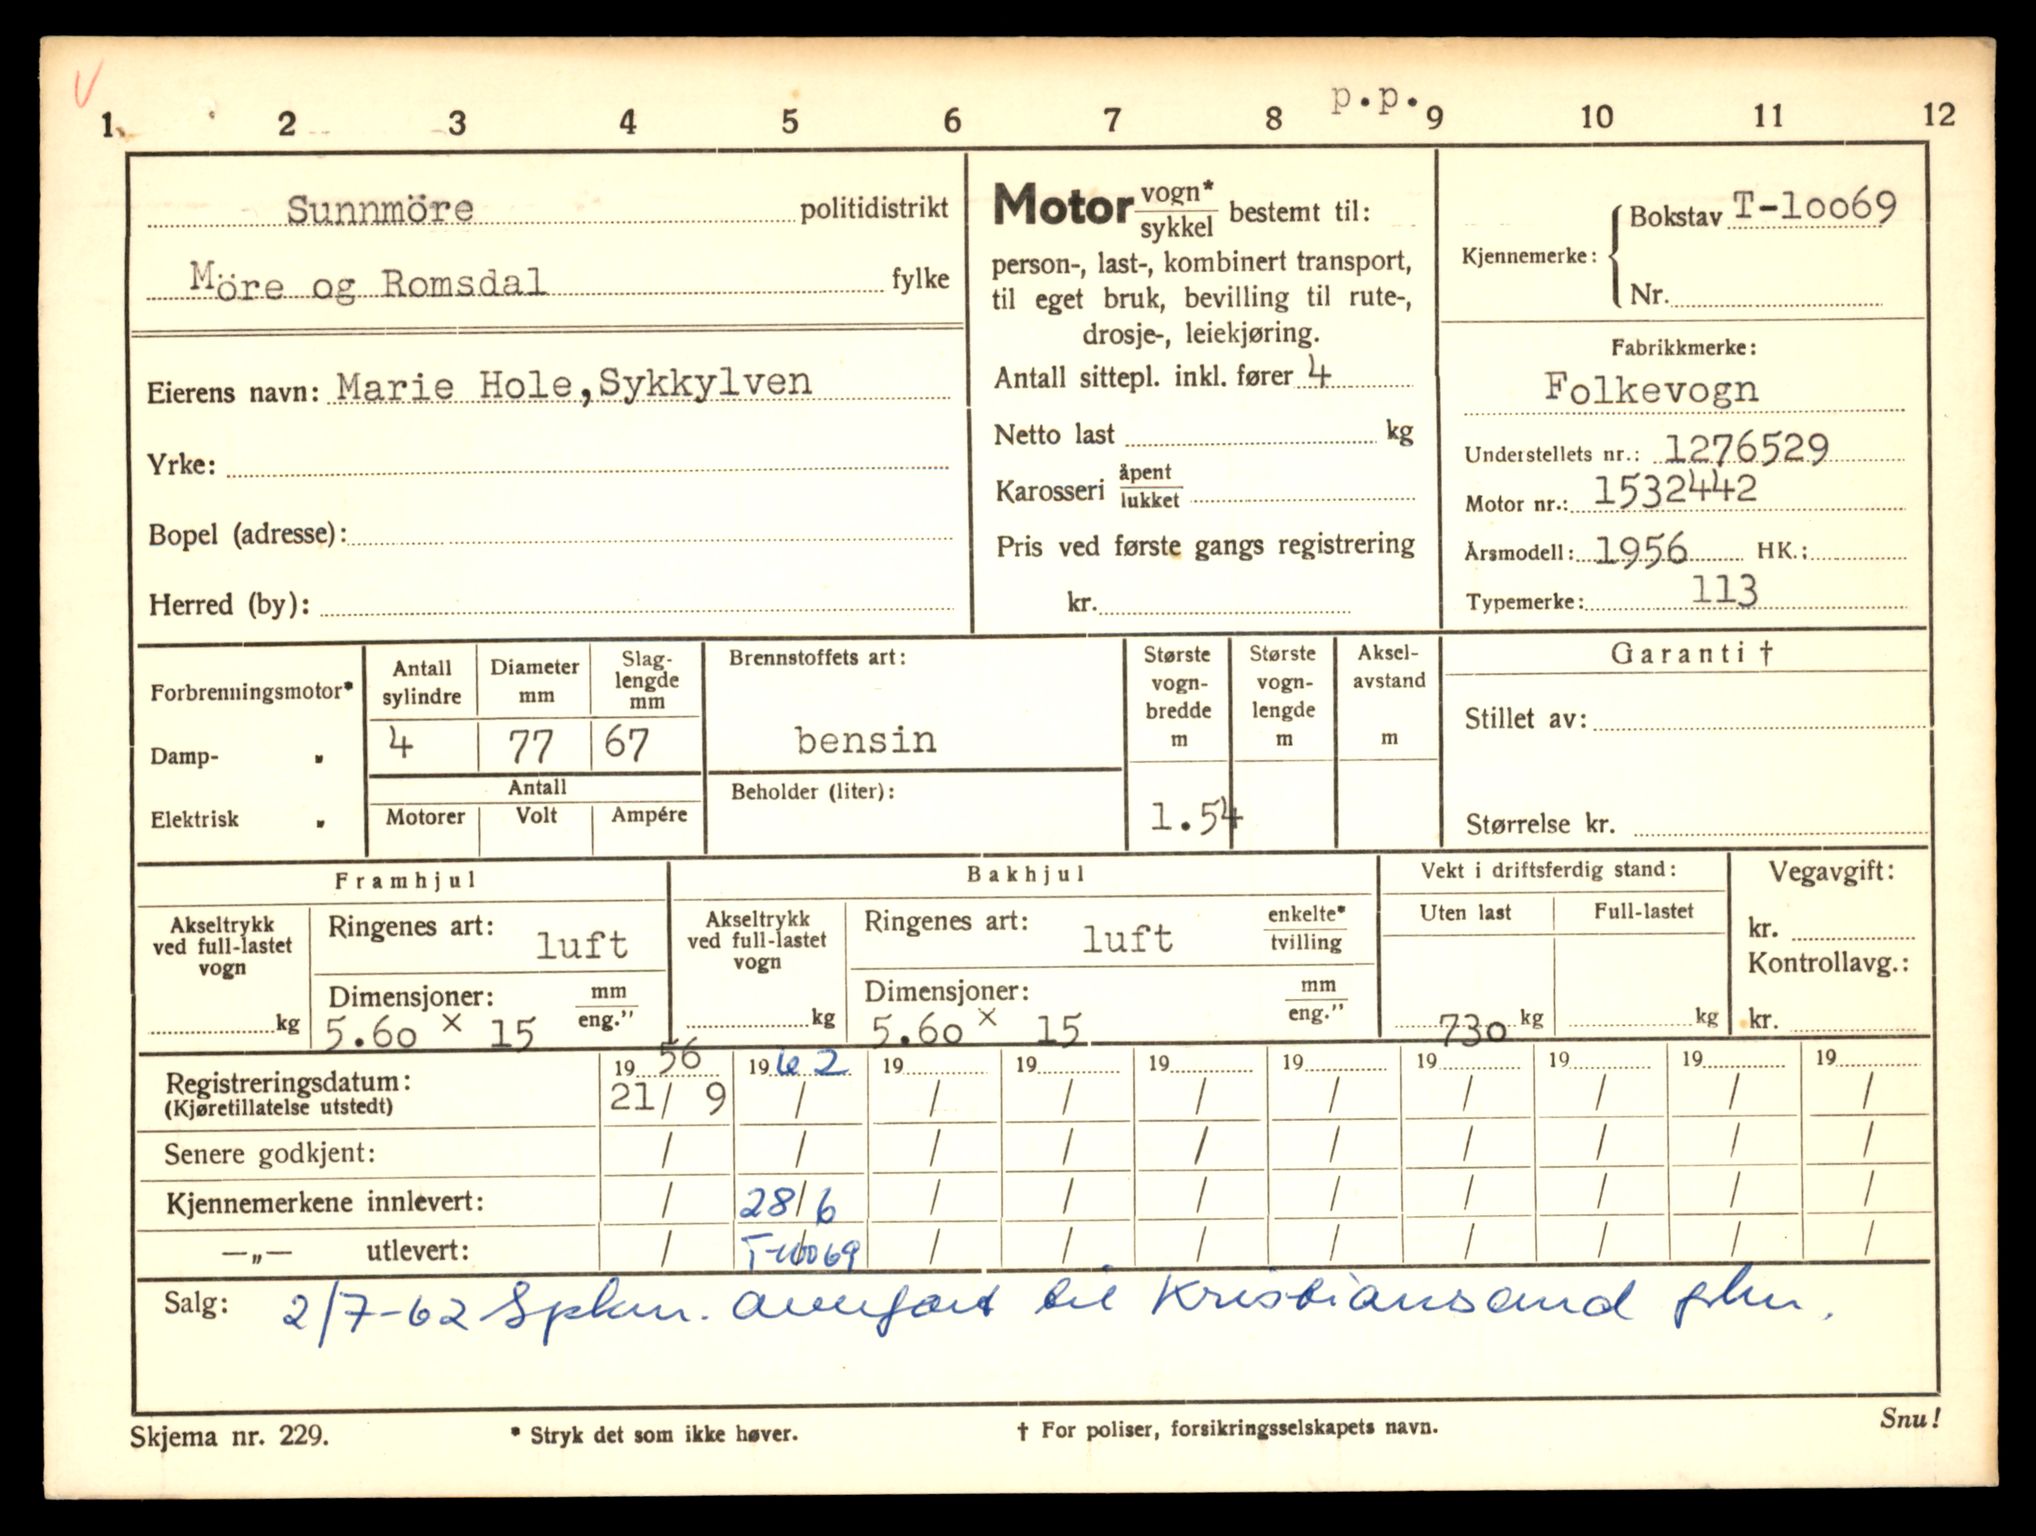 V
p.p.
1 2 3 4 5 6 7 8 9 10 11 12
Sunnmöre politidistrikt
Möre og Romsdal fylke
Eierens navn: Marie Hole, Sykkylven
Yrke:
Bopel (adresse):
Herred (by):
Motor vogn* / sykkel bestemt til:
person-, last-, kombinert transport,
til eget bruk, bevilling til rute-,
drosje-, leiekjøring.
Antall sittepl. inkl. fører 4
Netto last kg
Karosseri åpent / lukket
Pris ved første gangs registrering
kr.
Kjennemerke: Bokstav T-10069
Nr.
Fabrikkmerke:
Folkevogn
Understellets nr.: 1276529
Motor nr.: 1532442
Årsmodell: 1956 HK.:
Typemerke: 113
Forbrenningsmotor*
Damp- „
Elektrisk „
Antall sylindre
4
Diameter mm
77
Slag-
lengde
mm
67
Antall
Motorer Volt Ampére
Brennstoffets art:
bensin
Beholder (liter):
Største
vogn-
bredde
m
1.54
Største
vogn-
lengde
m
Aksel-
avstand
m
Garanti †
Stillet av:
Størrelse kr.
Framhjul
Akseltrykk
ved full-lastet
vogn
kg
Ringenes art: luft
Dimensjoner: mm / eng."
5.60 x 15
Bakhjul
Akseltrykk
ved full-lastet
vogn
kg
Ringenes art: luft enkelte* / tvilling
Dimensjoner: mm / eng."
5.60 x 15
Vekt i driftsferdig stand:
Uten last Full-lastet
730 kg kg
Vegavgift:
kr.
Kontrollavg.:
kr.
1956 1962 19 19 19 19 19 19 19 19
Registreringsdatum: 21/ 9 / / / / / / / / /
(Kjøretillatelse utstedt)
Senere godkjent: / / / / / / / / / /
Kjennemerkene innlevert: / 28/6 / / / / / / / /
—„— utlevert: / T-10069 / / / / / / / /
Salg: 2/7-62 Spkm. overført til Kristiansand
Skjema nr. 229.
* Stryk det som ikke høver.
† For poliser, forsikringsselskapets navn.
Snu!